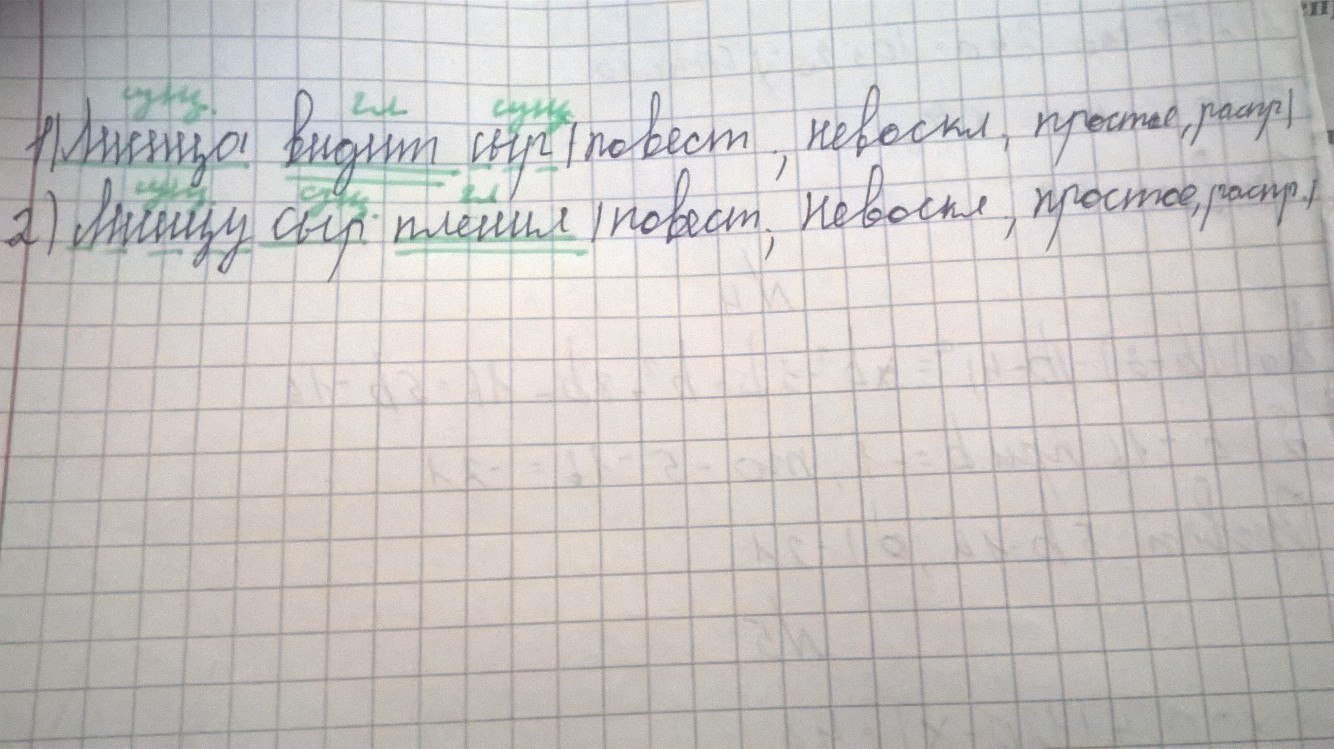 сущ. гл сущ
1) Лисица видит сыр (повест, невоскл, простое, распр)
сущ. сущ. гл
2) Лисицу сыр пленил (повест, невоскл, простое, распр.)